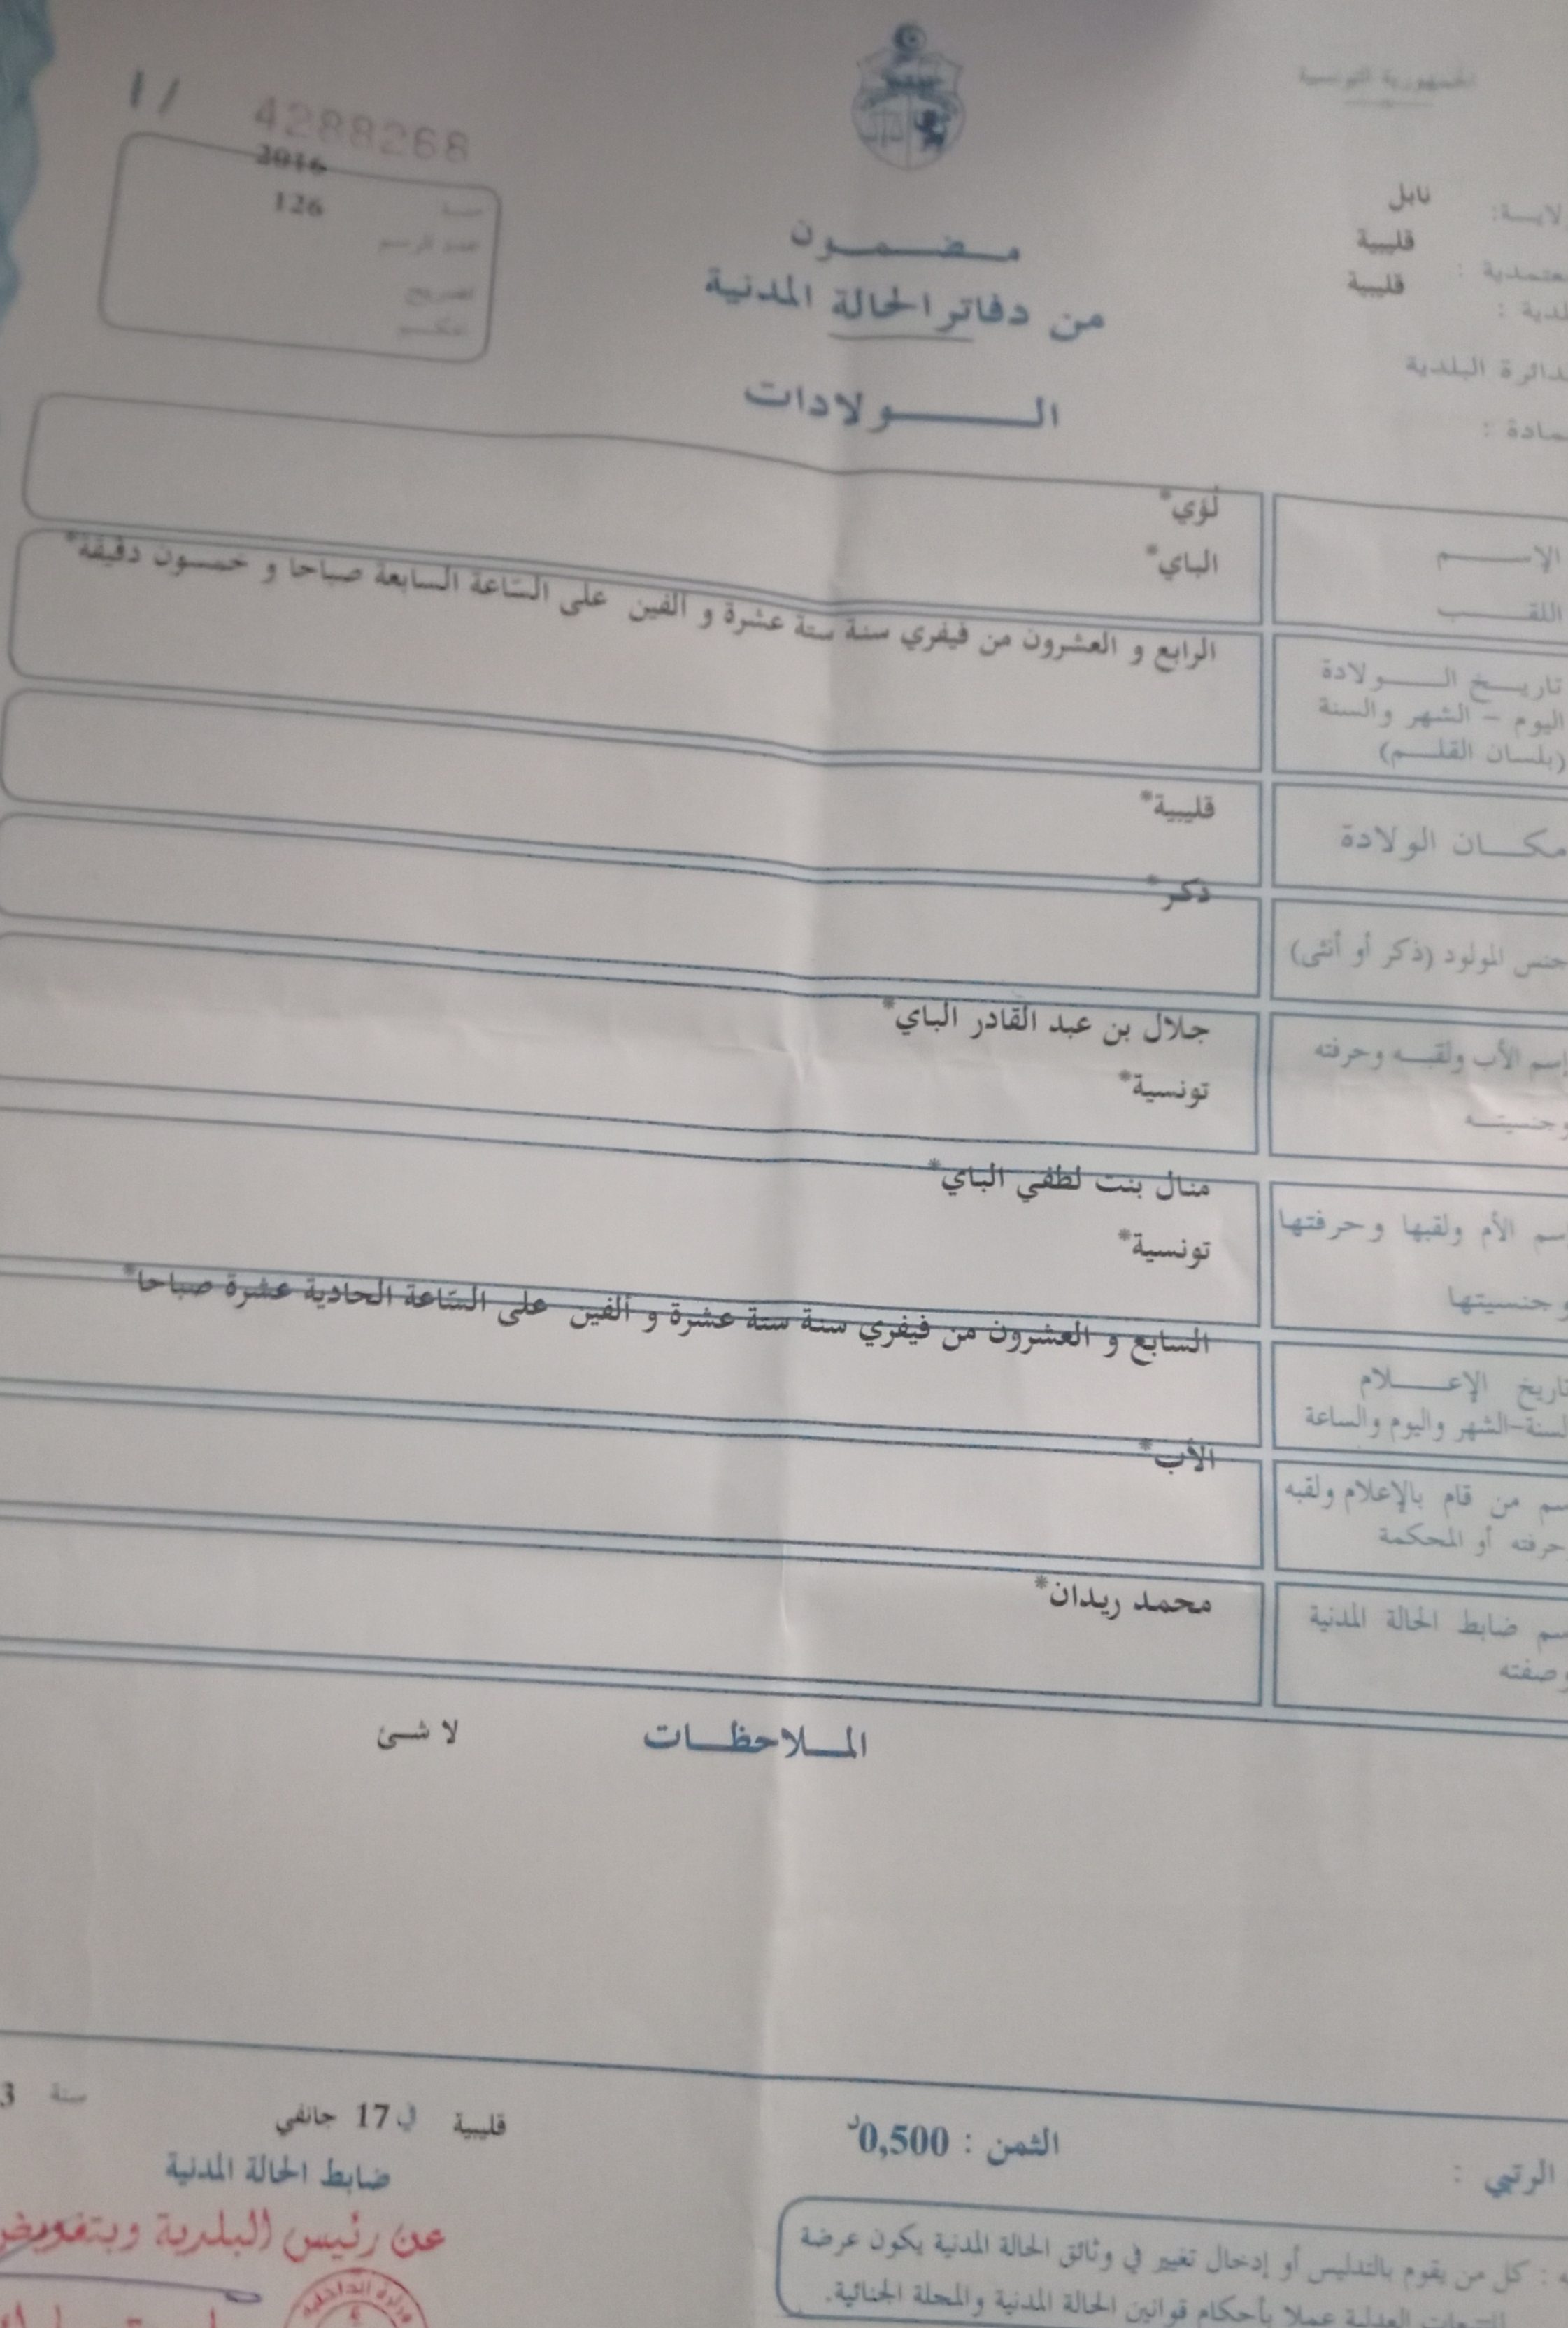 الجمهورية التونسية
11
4288268
2016
سنة 126
عدد الرسم
نابل
معتمدية : قليبية
قليبية
مضمون
من دفاتر الحالة المدنية
الولادات
الدائرة البلدية
الإسم لؤي*
اللقب الباي*
تاريخ الولادة
اليوم - الشهر والسنة
(بلسان القلم)
الرابع و العشرون من فيفري سنة ستة عشرة و ألفين على السّاعة السابعة صباحا و خمسون دقيقة*
مكان الولادة قليبية*
جنس المولود (ذكر أو أنثى) ذكر*
إسم الأب ولقبه وحرفته جلال بن عبد القادر الباي*
وجنسيته تونسية*
إسم الأم ولقبها وحرفتها منال بنت لطفي الباي*
وجنسيتها تونسية*
تاريخ الإعلام
السنة-الشهر واليوم والساعة
السابع و العشرون من فيفري سنة ستة عشرة و ألفين على السّاعة الحادية عشرة صباحا*
سم من قام بالإعلام ولقبه
حرفته أو المحكمة
الأب*
سم ضابط الحالة المدنية
وصفته
محمد ريدان*
الملاحظات لا شئ
قليبية في 17 جانفي سنة 3
ضابط الحالة المدنية
عن رئيس البلدية وبتفويض
وزارة الداخلية
الرتبي :
الثمن : 0,500د
كل من يقوم بالتدليس أو إدخال تغيير في وثائق الحالة المدنية يكون عرضة
للتتبعات العدلية عملا بأحكام قوانين الحالة المدنية والمجلة الجنائية.